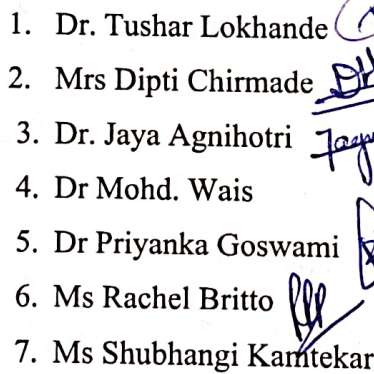 1. Dr. Tushar Lokhande
2. Mrs Dipti Chirmade
3. Dr. Jaya Agnihotri
4. Dr Mohd. Wais
5. Dr Priyanka Goswami
6. Ms Rachel Britto
7. Ms Shubhangi Kamtekar